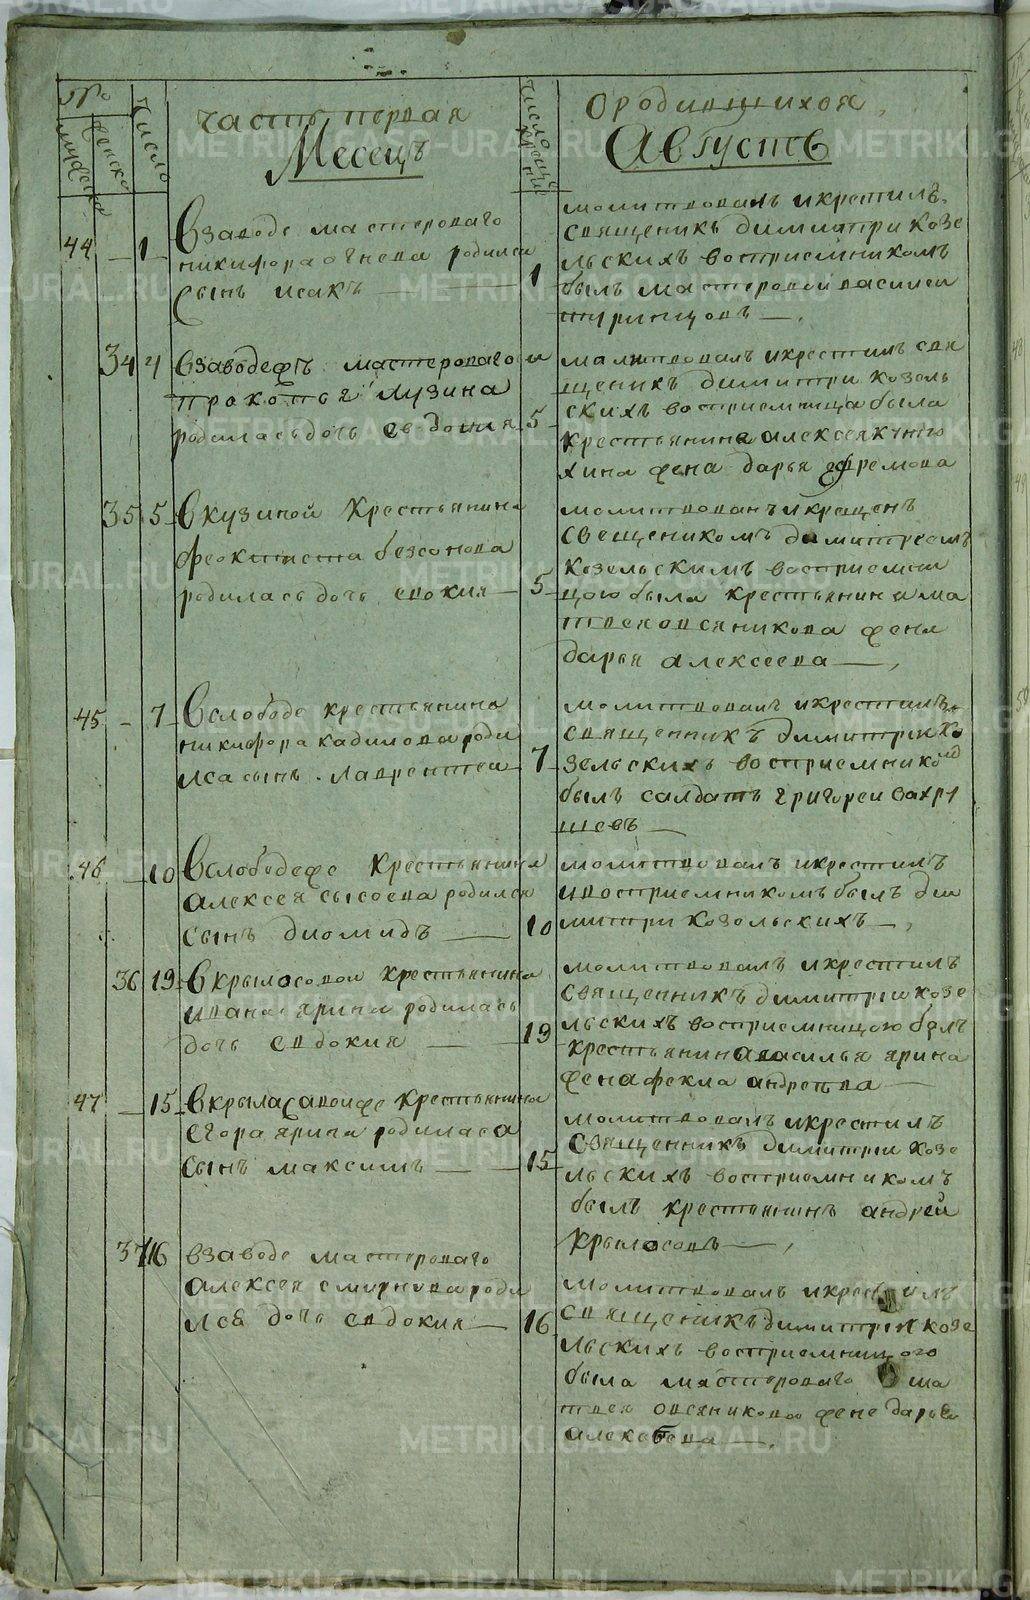 №
мужеска
женска
число
часть первая
Месецъ
число крещения
О родившихся
Августъ
44 1 Взаводе мастероваго
никифора огнева родился
сынъ исакъ
1
молитвовалъ икрестилъ
священикъ димитри козе
льскихъ восприемникомъ
былъ мастеровои василеи
34 4 Взаводефъ мастероваго
прокопья лузина
родиласьдочь евдокия
5
малитвовалъ икрестилъ свя
щеникъ димитри козель
скихъ восприемница была
крестьянина алексея
жена дарья ефремова
35 5 Вкузиной крестьянина
феоктиста безсонова
родиласьдочь евокия
5
молитвованъ икрещенъ
свещеникомъ димитреемъ
козельскимъ восприемни
цою была крестьянина ма
твея овсяникова жена
дарья алексеева
45 7 Вслободе крестьянина
никифора кадилова роди
лса сынъ лаврентеи
7
молитвовалъ икрестилъ
священникъ димитрии ко
зельскихъ восприемником
былъ салдатъ григореи вахру
шевъ
46 10 Вслободефе крестьянина
алексея сысоева родился
сынъ диомидъ
10
молитвовалъ икрестилъ
ивосприемникомъ былъ ди
митри козельскихъ
36 19 Вкрылосовои крестьянина
ивана ярина родилась
дочь евдокия
19
молитвовалъ икрестилъ
священникъ димитрии козе
льскихъ восприемницою был
крестьянина василья ярина
жена фекла андреева
47 15 Вкрыласавоифе крестьянина
егора ярина родилася
сынъ максимъ
15
молитвовалъ икрестилъ
священникъ димитрии козе
льскихъ восприемникомъ
былъ крестьянинъ андрей
крылосовъ
37 16 взаводе мастероваго
алексея смирнова роди
лса дочь евдокия
16
молитвовалъ икрестилъ
священикъ димитрии козе
льскихъ восприемницою
была мастероваго ма
твея овсяникова жене дарья
алексеева
METRIKI.GASO-URAL.RU